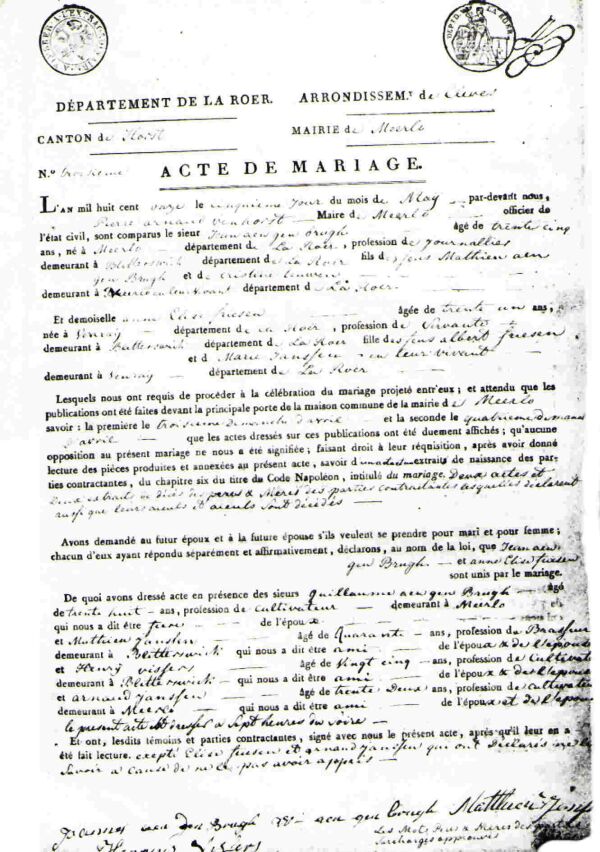 DÉPARTEMENT DE LA ROER. ARRONDISSEM.t de Cleves
CANTON de Horst MAIRIE de Meerlo
N.o troisieme ACTE DE MARIAGE.
L'AN mil huit cent onze le cinquieme jour du mois de May par-devant nous,
Pierre arnaud vanhorst Maire de Meerlo officier de
l'état civil, sont comparus le sieur Jean aen gen brugh âgé de trente cinq
ans, né à Meerlo département de La Roer, profession de journallier
demeurant à Blitterswick département de la Roer fils des feus Mathieu aen
gen Brugh et de cristine
demeurant à département de La Roer
Et demoiselle anne Elise friesen âgée de trente un ans,
née à Venray département de la Roer, profession de Servante
demeurant à Blitterswick département de La Roer fille des feus albert friesen
et d Marie Janssen en leur vivant
demeurant à Venray département de La Roer
Lesquels nous ont requis de procéder à la célébration du mariage projeté entr'eux; et attendu que les
publications ont été faites devant la principale porte de la maison commune de la mairie de Meerlo
savoir: la première le troisieme dimanche d'avril et la seconde le quatrieme dimanche
d'avril que les actes dressés sur ces publications ont été duement affichés; qu'aucune
opposition au présent mariage ne nous a été signifiée; faisant droit à leur réquisition, après avoir donné
lecture des pièces produites et annexées au présent acte, savoir d extraits de naissance des par-
ties contractantes, du chapitre six du titre du Code Napoléon, intitulé du mariage, Deux actes et
Deux extraits de décès des peres & Meres des parties contractantes lesquelles déclarent
aussi que leurs aieuls et aieuls sont décédés
Avons demandé au futur époux et à la future épouse s'ils veulent se prendre pour mari et pour femme;
chacun d'eux ayant répondu séparément et affirmativement, déclarons, au nom de la loi, que Jean aen
gen Brugh et anne Elise friesen
sont unis par le mariage.
De quoi avons dressé acte en présence des sieurs Guillaume aen gen Brugh âgé
de trente huit ans, profession de Cultivateur demeurant à Meerlo et
qui nous a dit être frere de l'époux
et Mathieu Janssen âgé de Quarante ans, profession de Brasseur
demeurant à Blitterswick qui nous a dit être ami de l'époux & de l'épouse
et Henry vissers âgé de Vingt cinq ans, profession de Cultivat
demeurant à Blitterswick qui nous a dit être ami de l'époux & de l'épouse
et arnaud Janssen âgé de trente Deux ans, profession de cultivateur
demeurant à Meerlo qui nous a dit être ami de l'époux et de l'épouse
le present acte dressé a Sept heures du soire
Et ont, lesdits témoins et parties contractantes, signé avec nous le présent acte, après qu'il leur en a
été fait lecture. exepté Elise friesen et arnaud Janssen qui ont déclarés ne
Savoir a cause de ne le pas avoir appris
Joannes aen den Brugh W aen gen brugh Matthieu
Les Mots Peres & Meres des
Surcharges approuvés